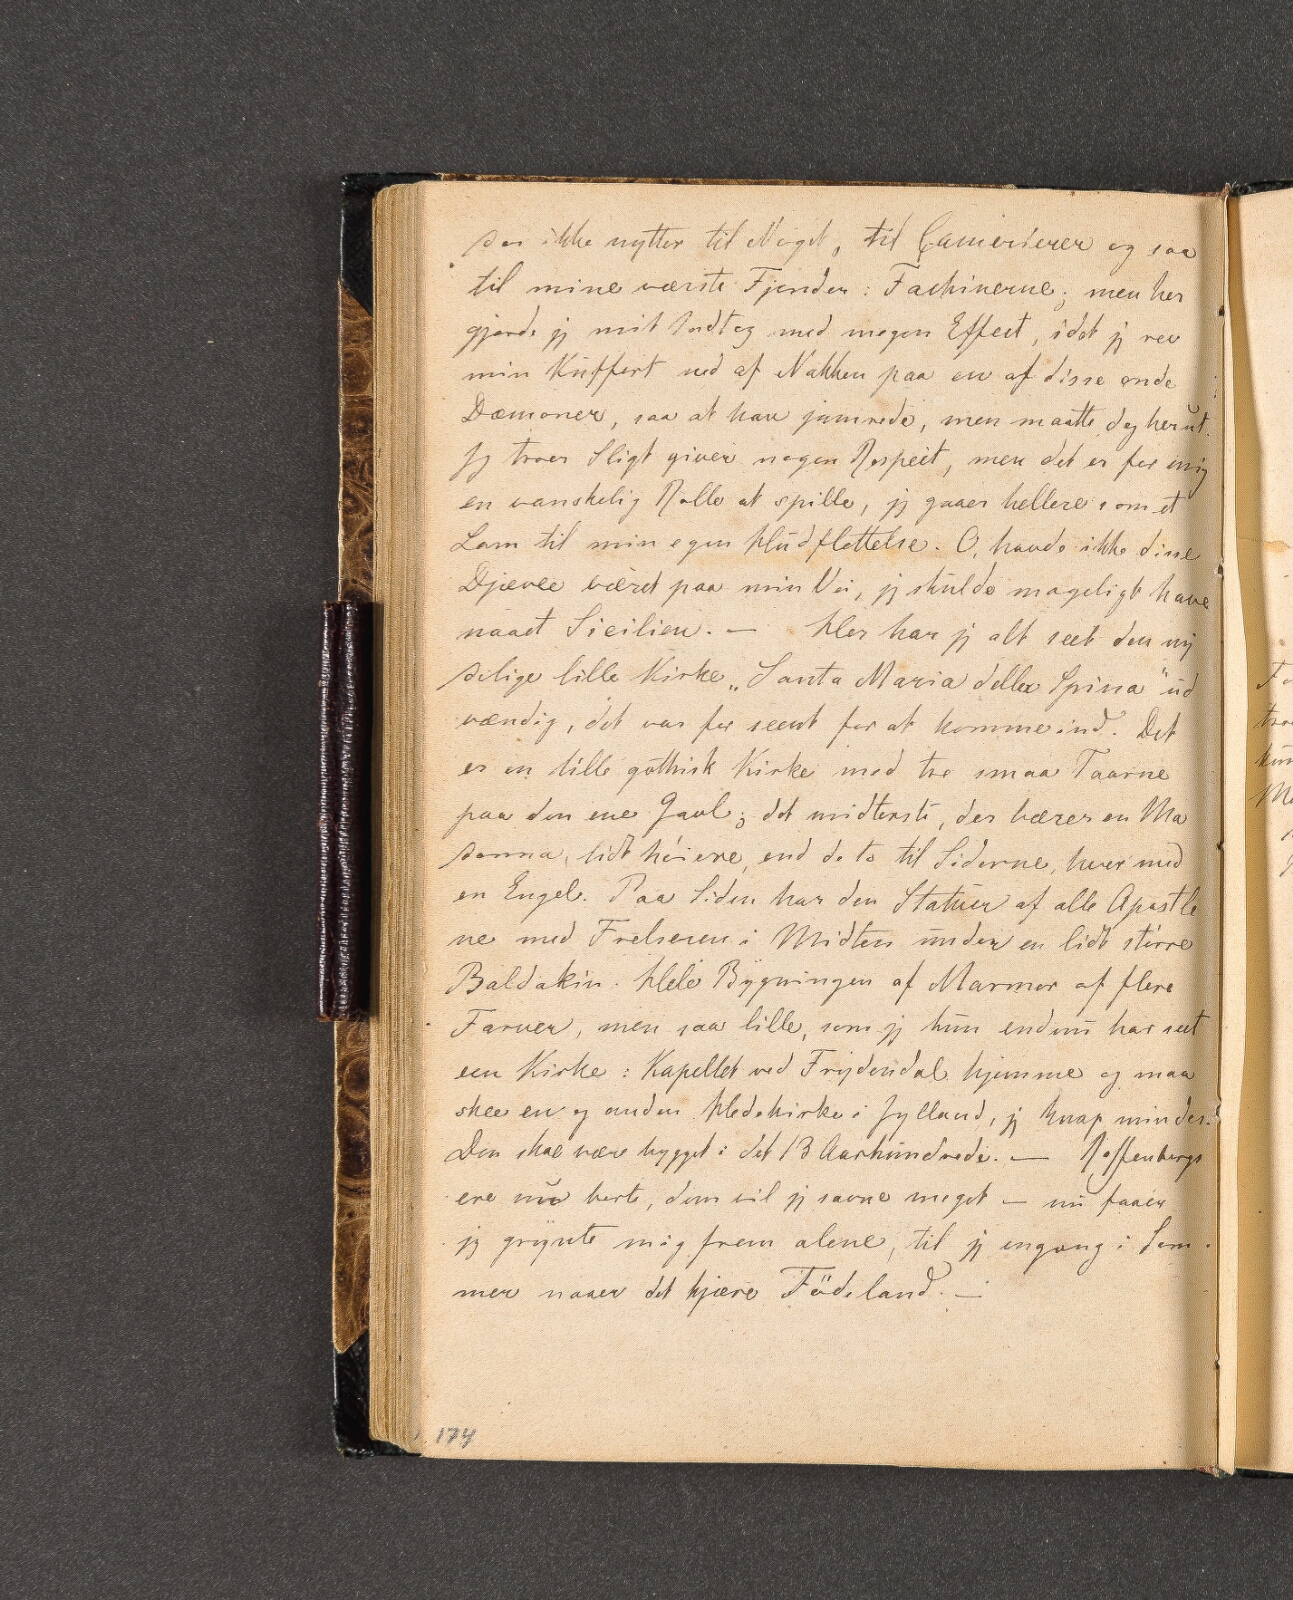 der ikke nytter til Noget, til Camerierer og saa
til mine værste Fjender: Fachinerne; men her
gjorde jg mit Indtog med megen Effect, idet jg rev
min Kuffert ned af Nakken paa en af disse onde
Dæmoner, saa at han jamrede, men maatte dog herut.
Jg troer Sligt giver nogen Respect, men det er for mig
en vanskelig Rolle at spille, jg gaaer hellere som et
Lam til min egen Hudflettelse. O, havde ikke disse
Djævle været paa min Vei, jg skulde mageligt have
naaet Sicilien. — Her har jg alt seet den ny
delige lille Kirke „Santa Maria della Spina" ud
vændig, det var for seent for at komme ind. Det
er en lille gothisk Kirke med tre smaa Taarne
paa den ene Gavl; det midterste, der bærer en Ma
donna, lidt høiere, end de to til Siderne, hver med
en Engel. Paa Siden har den Statuer af alle Apostle
ne med Frelseren i Midten under en lidt større
Baldakin. Hele Bygningen af Marmor af flere
Farver, men saa lille, som jg kun endnu har seet
een Kirke: Kapellet ved Frydendal hjemme og maa
skee en og anden Hedekirke i Jylland, jg knap mindes.
Den skal være bygget i det 13 Aarhundrede. — Roffenbergs
ere nu borte, dem vil jg savne meget — nu faaer
jg grynte mig frem alene, til jg engang i Som
mer naaer det kjære Födeland. —
174
Fo
tro
kun
Me